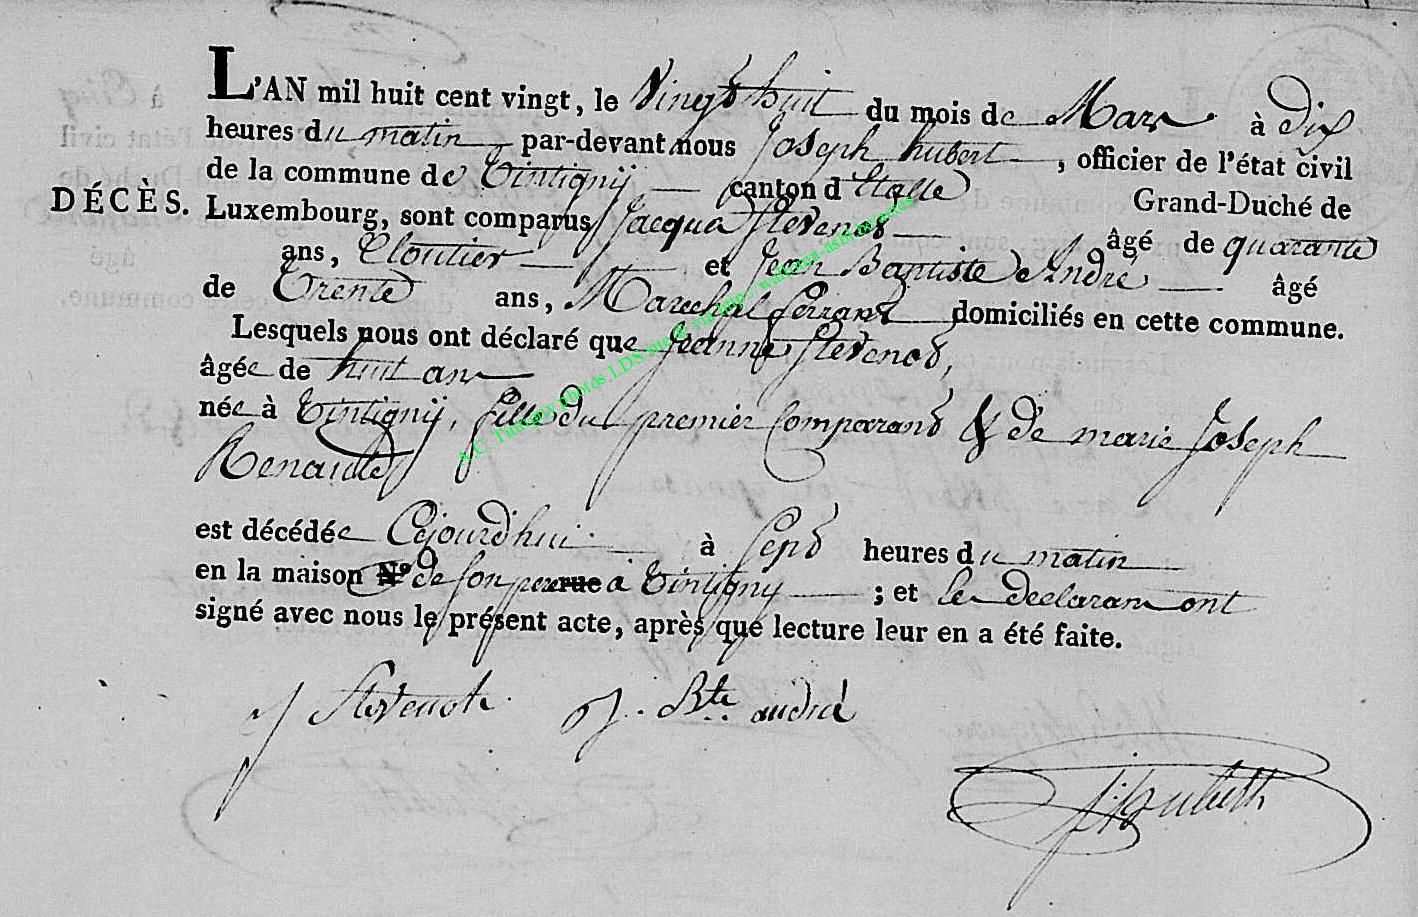 L'AN mil huit cent vingt, le Vingt huit du mois de Mars à dix
heures du matin par-devant nous Joseph hubert, officier de l'état civil
de la commune de Tintigny canton d'Etalle Grand-Duché de
DÉCÈS. Luxembourg, sont comparus Jacque Stevenot âgé de quarante
ans, Cloutier et Jean Baptiste André âgé
de Trente ans, Marechal ferrant domiciliés en cette commune.
Lesquels nous ont déclaré que Jeanne Stevenot,
âgée de huit ans
née à Tintigny, fille du premier Comparant & de marie Joseph
Renauld
est décédée Cejourd'hui à Sept heures du matin
en la maison N.º de son pere rue à Tintigny ; et les declarans ont
signé avec nous le présent acte, après que lecture leur en a été faite.
J Stevenot J. Bte andré
J: hubert
A.C. Tintigny Photos LDS site & via http://wallonia-asbl.be/actes